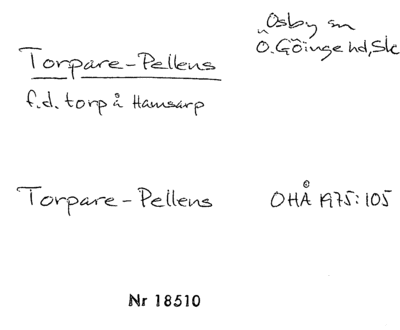 Osby sn
Ö. Göinge hd, Sk
Torpare-Pellens
f.d. torp å Hamsarp
Torpare-Pellens OHÅ 1975:105
Nr 18510